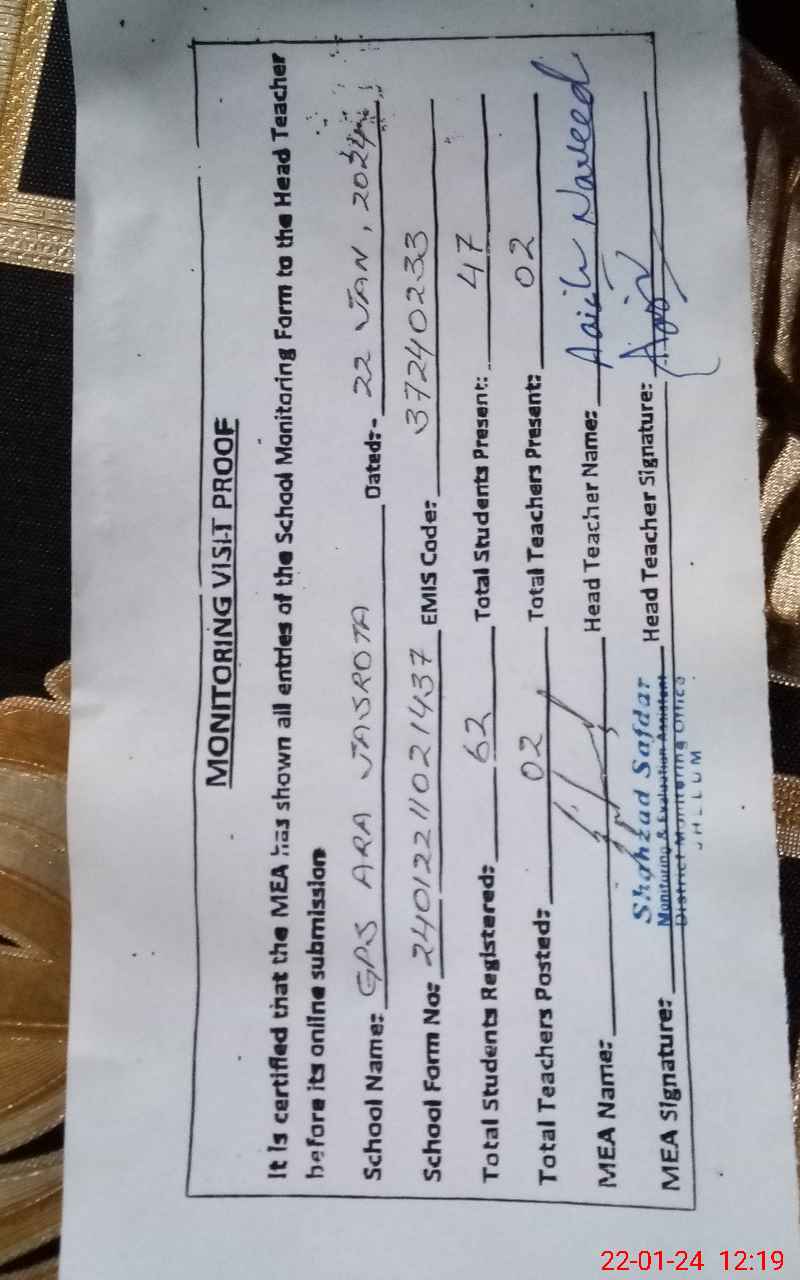 MONITORING VISIT PROOF
It is certified that the MEA has shown all entries of the School Monitoring Form to the Head Teacher
before its online submission
School Name: GPS ARA JASROTA Dated:- 22 JAN, 2024
School Form No: 2401221102 1437 EMIS Code: 37240233
Total Students Registered: 62 Total Students Present: 47
Total Teachers Posted: 02 Total Teachers Present: 02
MEA Name: Head Teacher Name: Naveed
MEA Signature: Head Teacher Signature:
Shahzad Safdar
Monitoring & Evaluation Assistant
District Monitoring Office
JHELUM
22-01-24 12:19